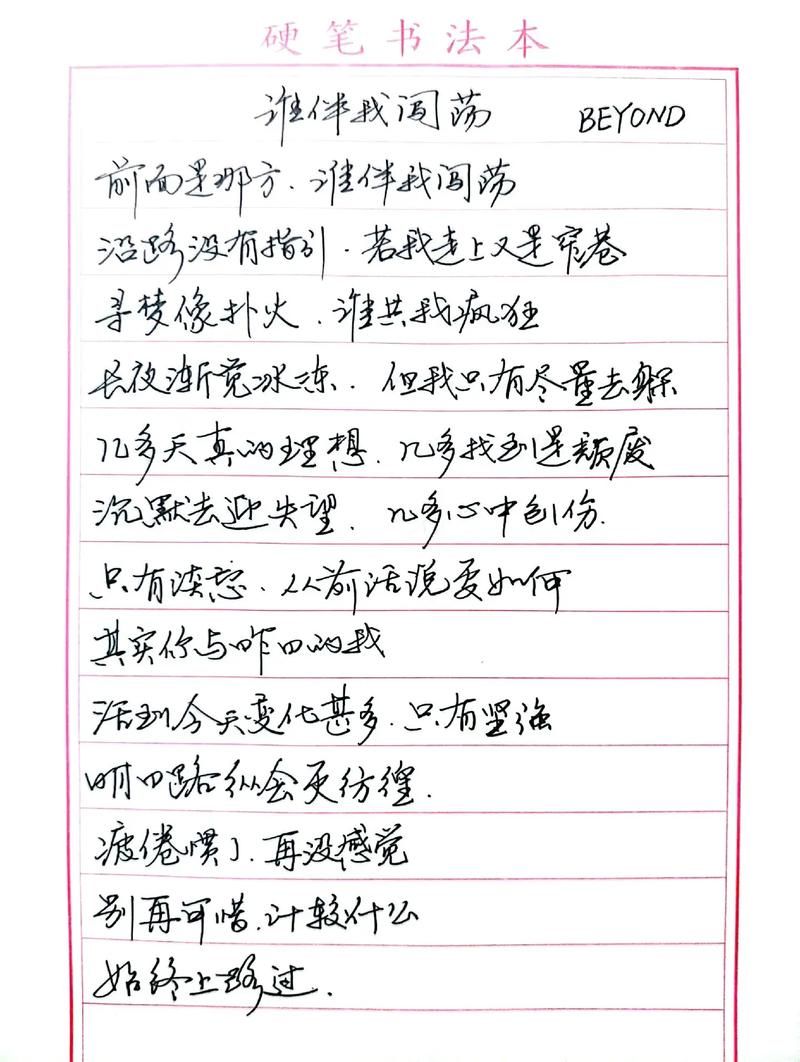 硬笔书法本
谁伴我闯荡 BEYOND
前面是那方.谁伴我闯荡
沿路没有指引.若我走上又是窄巷
寻梦像扑火.谁共我疯狂
长夜渐觉冰冻.但我只有尽量去躲
几多天真的理想.几多找到是颓废
沉默去迎失望.几多心中创伤.
只有淡忘.从前话说要如何
其实你与昨日的我
活到今天变化甚多.只有坚强
明日路纵会更彷徨.
疲倦惯了.再没感觉
别再可惜.计较什么
始终上路过.